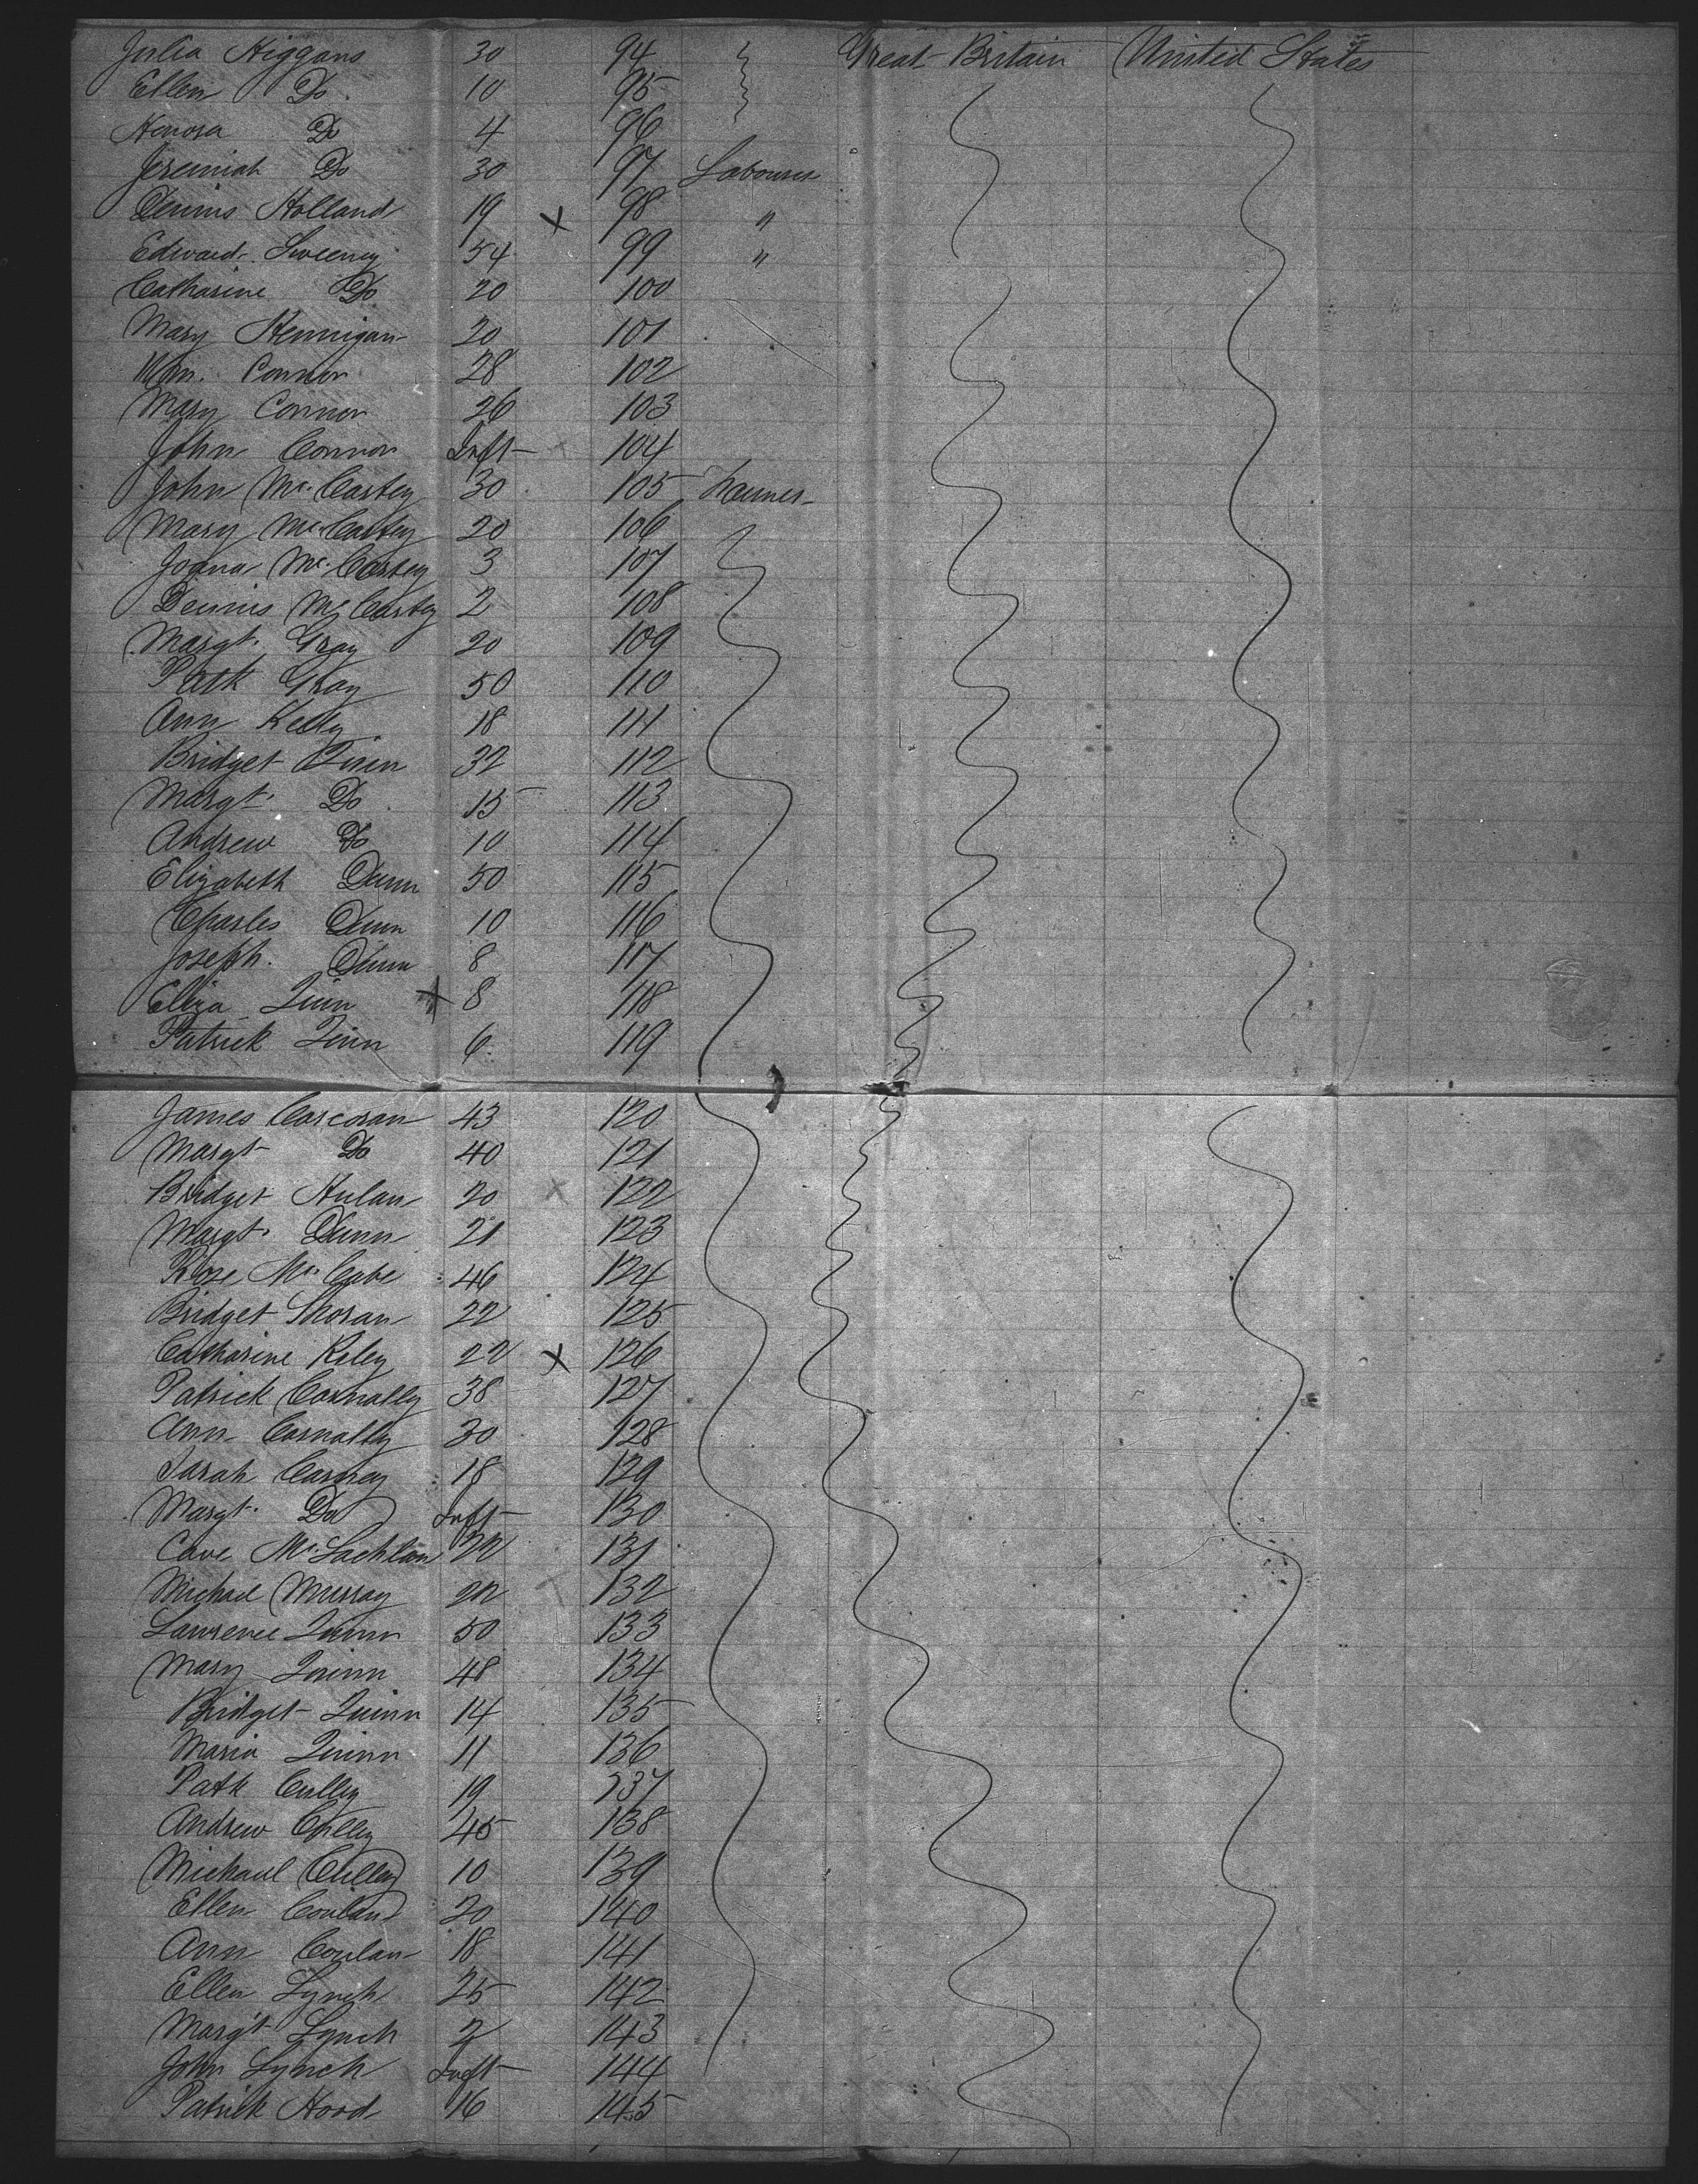 Julia Higgans 30 94 Great Britain United States
Ellen Do 10 95
Honora Do 4 96
Jeremiah Do 30 97 Labourer
Dennis Holland 19 x 98 "
Edward Sweeney 54 99 "
Catharine Do 20 100
Mary Hennigan 20 101
Wm. Connor 28 102
Mary Connor 26 103
John Connor Inft 104
John McCartey 30 105
Mary McCartey 20 106
Joana McCartey 3 107
Dennis McCartey 2 108
Margt. Gray 20 109
Patk Gray 50 110
Ann Kelly 18 111
Bridget Quin 32 112
Margt. Do 15 113
Andrew Do 10 114
Elizabeth Dunn 50 115
Charles Dunn 10 116
Joseph. Dunn 8 117
Eliza Quin x 8 118
Patrick Quin 6 119
James Corcoran 43 120
Margt Do 40 121
Bridget Hulan 20 x 122
Margt. Dunn 21 123
Rose McCabe 46 124
Bridget Moran 22 125
Catharine Riley 22 x 126
Patrick Connally 38 127
Ann Connally 30 128
Sarah Carney 18 129
Margt. Do Inft 130
Cave McLachlan 22 131
Michael Murray 22 132
Lawrence Quinn 50 133
Mary Quinn 48 134
Bridget Quinn 14 135
Maria Quinn 11 136
Patk Culley 19 137
Andrew Culley 45 138
Michaul Culley 10 139
Ellen Conlan 20 140
Ann Conlan 18 141
Ellen Lynch 25 142
Margt Lynch 2 143
John Lynch Inft 144
Patrick Hood 16 145